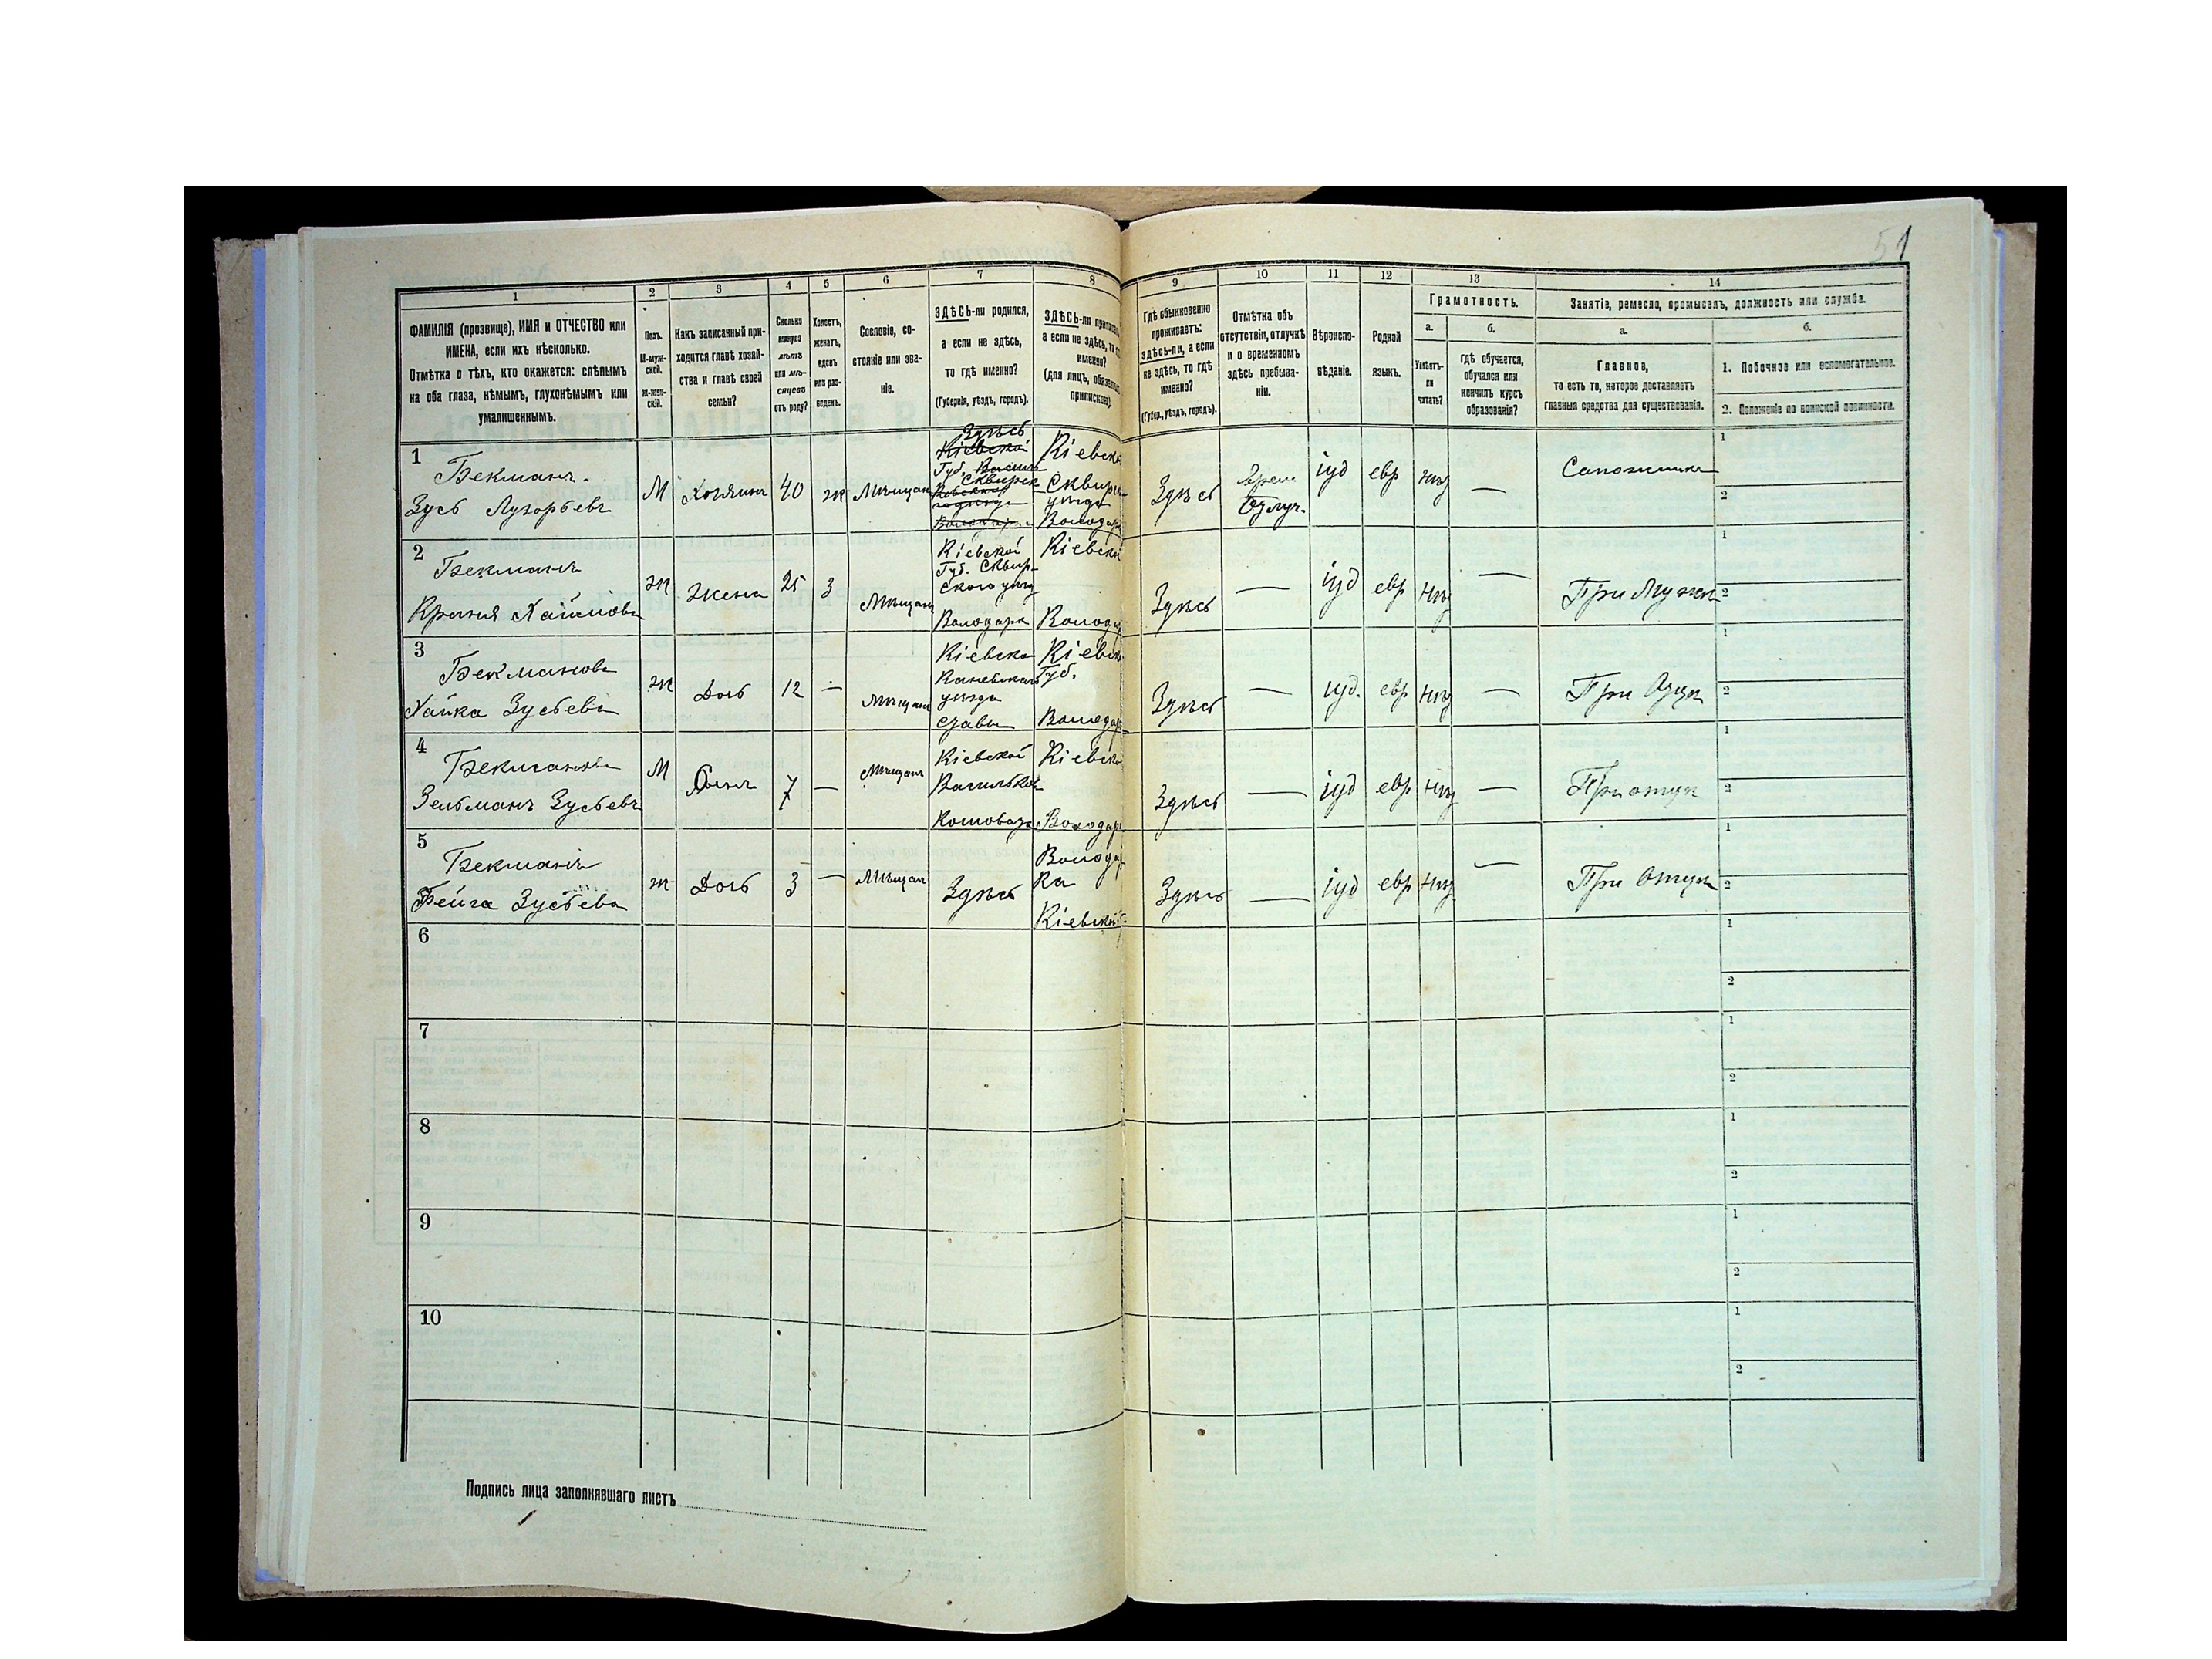 51
1
2
3
4
5
6
7
8
9
10
11
12
13
14
ФАМИЛІЯ (прозвище), ИМЯ и ОТЧЕСТВО или
ИМЕНА, если ихъ нѣсколько.
Отмѣтка о тѣхъ, кто окажется: слѣпымъ
на оба глаза, нѣмымъ, глухонѣмымъ или
умалишеннымъ.
Полъ.
М-муж-
ской.
Ж-жен-
скій.
Какъ записанный при-
ходится главѣ хозяй-
ства и главѣ своей
семьи?
Сколько
минуло
лѣтъ
или мѣ-
сяцевъ
отъ роду?
Холостъ,
женатъ,
вдовъ
или раз-
веденъ.
Сословіе, со-
стояніе или зва-
ніе.
ЗДѢСЬ-ли родился,
а если не здѣсь,
то гдѣ именно?
(Губернія, уѣздъ, городъ).
ЗДѢСЬ-ли
а если не здѣсь, то
именно?
(для лицъ,
припискою).
Гдѣ обыкновенно
проживаетъ:
здѣсь-ли, а если
не здѣсь, то гдѣ
именно?
(Губер., уѣздъ, городъ).
Отмѣтка объ
отсутствіи, отлучкѣ
и о временномъ
здѣсь пребыва-
ніи.
Вѣроиспо-
вѣданіе.
Родной
языкъ.
Грамотность.
а.
Умѣетъ-
ли
читать?
б.
гдѣ обучается,
обучался или
кончилъ курсъ
образованія?
Занятіе, ремесло, промыселъ, должность или служба.
а.
Главное,
то есть то, которое доставляетъ
главныя средства для существованія.
б.
1. Побочное или вспомогательное.
2. Положеніе по воинской повинности.
1
Бекманъ
Зусь Лузорьевъ
М
Хозяинъ
40
ж
Мѣщан
Здѣсь
Кіевской
Губ.
Сквирск
Кіевско
Сквирск
уѣзда
Володар
Здѣсь
Отлуч.
іуд
евр
нѣт
—
Сапожникъ
1
2
2
Бекманъ
Крейня Хаимова
Ж
Жена
25
З
Мѣщан
Кіевской
Губ. Сквир-
ского уѣзд
Володарк
Кіевской
Володар
Здѣсь
—
іуд
евр
нѣт
—
При Мужѣ
1
2
3
Бекманова
Хайка Зусьева
Ж
Дочь
12
—
Мѣщан
Кіевско
Каневскаго
уѣзда
Кіевск
Губ.
Володар
Здѣсь
—
іуд.
евр
нѣт
—
При Отцѣ
1
2
4
Зельманъ Зусьевъ
М
Сынъ
7
—
Мѣщан
Кіевской
Васильков
Кіевско
Володар
Здѣсь
—
іуд
евр
нѣт
—
При отцѣ
1
2
5
Бекманъ
Фейга Зусьева
ж
Дочь
3
—
Мѣщан
Здѣсь
Володар
ка
Кіевской
Здѣсь
—
іуд
евр
нѣт
—
При Отцѣ
1
2
6
1
2
7
1
2
8
1
2
9
1
2
10
1
2
Подпись лица заполнявшаго листъ